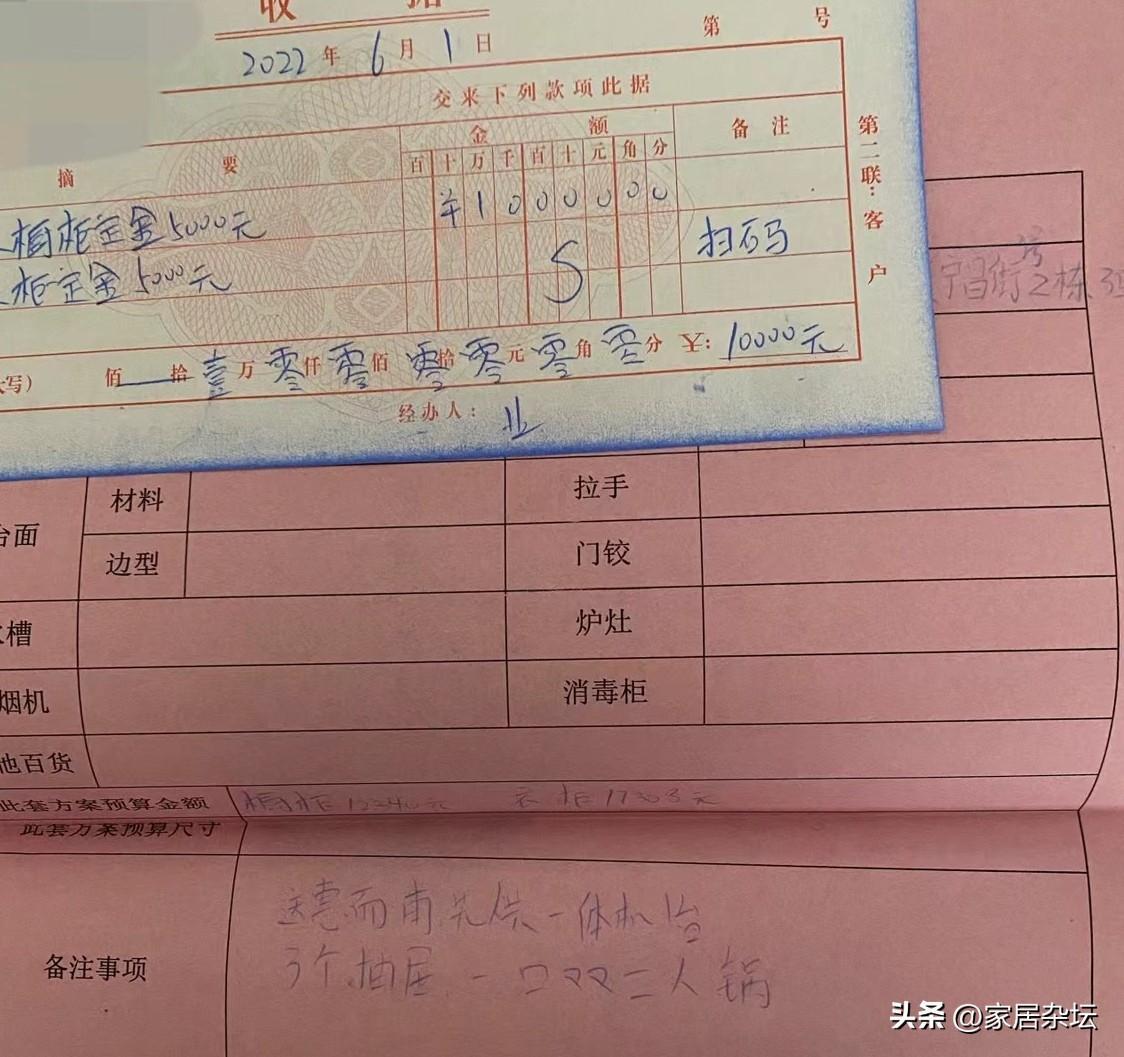 收 据
2022年6月1日
第 号
交来下列款项此据
摘 要
金 额
备 注
百十万千百十元角分
橱柜定金5000元
¥1000000
柜定金5000元
扫码
第二联：客户
宁昌街
2栋
佰 拾壹万零仟零佰零拾零元零角零分 ¥: 10000元
经办人：
台面
材料
拉手
边型
门铰
水槽
炉灶
烟机
消毒柜
他百货
此套方案预算金额
橱柜 元 衣柜 元
此套方案预算尺寸
备注事项
送惠而浦 一体机 台
3个抽屉 一口 锅
头条 @家居杂坛